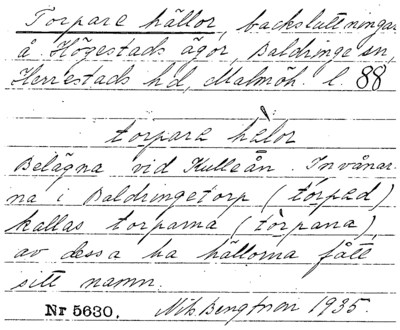 Torpare hällor, backslattningar
å Högestads ägor, Baldringe sn,
Herrestads hd, Malmöh. l. 88
torpara hèlor
Belägna vid Kulleån. Invånar-
na i Baldringetorp (tòrped)
kallas torparna (tòrpana),
av dessa ha hällorna fått
sitt namn.
Nr 5630. Nils Bengtsson 1935.